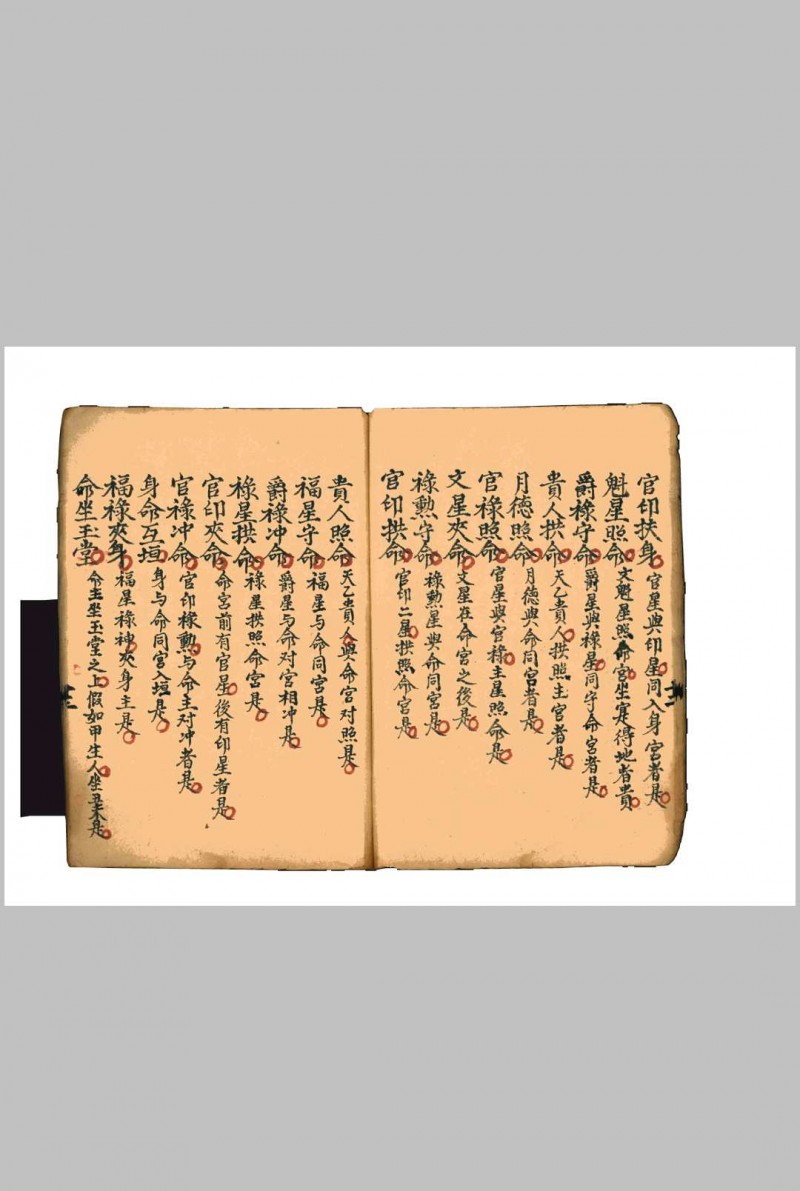 官印扶身 官星與印星同入身宮者是
魁星照命 文魁星照命宮坐寔得地者貴
爵祿守命 爵星與祿星同守命宮者是
貴人拱命 天乙貴人拱照主官者是
月德照命 月德與命同宮者是
官祿照命 官星與官祿主星照命是
文星夾命 文星在命宮之後是
祿勲守命 祿勲星與命同宮是
官印拱命 官印二星拱照命宮是
貴人照命 天乙貴人與命宮对照是
福星守命 福星与命同宮是
爵祿冲命 爵星与命对宮相冲是
祿星拱命 祿星拱照命宮是
官印夾命 命宮前有官星後有印星者是
官祿冲命 官印祿勲与命主对冲者是
身命互垣 身与命同宮入垣是
福祿夾身 福星祿神夾身主是
命坐玉堂 命主坐玉堂之上假如甲生人坐丑未是